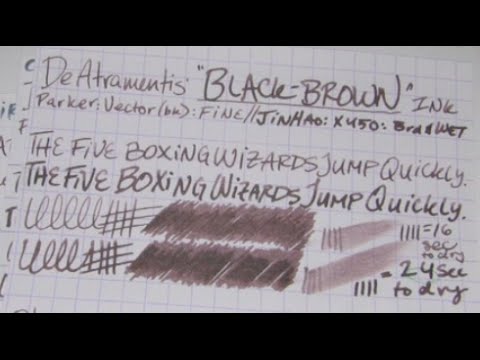 De Atramentis "BLACK-BROWN" INK
Parker: Vector(blk): FINE//JINHAO: X450: Broad WET
THE FIVE BOXING WIZARDS JUMP QUICKLY.
THE FIVE BOXING WIZARDS JUMP QUICKLY.
=16
sec
to dry
= 24 sec
to dry